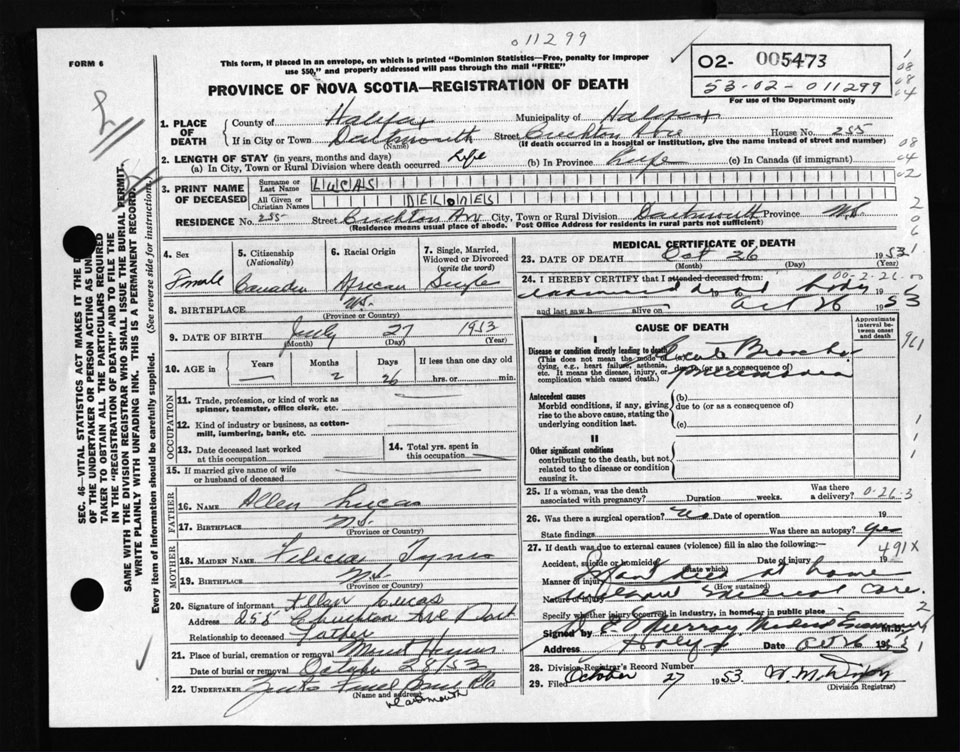 011299
FORM 6
This form, if placed in an envelope, on which is printed "Dominion Statistics—Free, penalty for improper
use $50," and properly addressed will pass through the mail "FREE"
02- 005473
53-02-011299
For use of the Department only
PROVINCE OF NOVA SCOTIA—REGISTRATION OF DEATH
1. PLACE OF DEATH
County of Halifax Municipality of Halifax
If in City or Town Dartmouth Street Crichton Ave House No. 255
(Name) (If death occurred in a hospital or institution, give the name instead of street and number)
2. LENGTH OF STAY (in years, months and days)
(a) In City, Town or Rural Division where death occurred Life (b) In Province Life (c) In Canada (if immigrant)
3. PRINT NAME OF DECEASED
Surname or Last Name LUCAS
All Given or Christian Names DELORES
RESIDENCE No. 255 Street Crichton Ave City, Town or Rural Division Dartmouth Province N.S.
(Residence means usual place of abode. Post Office Address for residents in rural parts not sufficient)
4. Sex
Female
5. Citizenship (Nationality)
Canadian
6. Racial Origin
African
7. Single, Married, Widowed or Divorced (write the word)
Single
8. BIRTHPLACE N.S.
(Province or Country)
9. DATE OF BIRTH July 27 1953
(Month) (Day) (Year)
10. AGE in
Years Months Days If less than one day old
2 26 hrs. or min.
OCCUPATION
11. Trade, profession, or kind of work as spinner, teamster, office clerk, etc.
12. Kind of industry or business, as cotton-mill, lumbering, bank, etc.
13. Date deceased last worked at this occupation
14. Total yrs. spent in this occupation
15. If married give name of wife or husband of deceased
FATHER
16. NAME Allen Lucas
17. BIRTHPLACE N.S.
(Province or Country)
MOTHER
18. MAIDEN NAME Felicia Tynes
19. BIRTHPLACE N.S.
(Province or Country)
20. Signature of informant Allen Lucas
Address 255 Crichton Ave Dart
Relationship to deceased Father
21. Place of burial, cremation or removal Mount Hermon
Date of burial or removal October 28/53
22. UNDERTAKER
(Name and address)
Dartmouth
MEDICAL CERTIFICATE OF DEATH
23. DATE OF DEATH Oct 26 1953
(Month) (Day) (Year)
24. I HEREBY CERTIFY that I attended deceased from:
00-2-26
examined dead body
and last saw h alive on Oct 26 1953
CAUSE OF DEATH
Approximate interval between onset and death
I
Disease or condition directly leading to death
(This does not mean the mode of dying, e.g., heart failure, asthenia, etc. It means the disease, injury, or complication which caused death.)
Acute Broncho pneumonia
due to (or as a consequence of)
Antecedent causes
Morbid conditions, if any, giving rise to the above cause, stating the underlying condition last.
(b)
due to (or as a consequence of)
(c)
II
Other significant conditions
contributing to the death, but not related to the disease or condition causing it.
25. If a woman, was the death associated with pregnancy? Duration weeks. Was there a delivery? 0-26-3
26. Was there surgical operation? No Date of operation 19
State findings Was there an autopsy? yes
27. If death was due to external causes (violence) fill in also the following:—
491X
Accident, suicide or homicide Date of injury 19
(State which)
Manner of injury Infant died at home
(How sustained)
Nature of injury without medical care.
Specify whether injury occurred in industry, in home or in public place
Signed by Murray Medical Examiner M.D.
Address Halifax Date Oct 26 1953
28. Division Registrar's Record Number
29. Filed October 27 1953
(Division Registrar)
SEC. 46—VITAL STATISTICS ACT MAKES IT THE D
OF THE UNDERTAKER OR PERSON ACTING AS UN
TAKER TO OBTAIN ALL THE PARTICULARS REQUIRED
IN THE "REGISTRATION OF DEATH" AND TO FILE THE
SAME WITH THE DIVISION REGISTRAR WHO SHALL ISSUE THE BURIAL PERMIT.
WRITE PLAINLY WITH UNFADING INK. THIS IS A PERMANENT RECORD.
Every item of information should be carefully supplied. (See reverse side for instructions)